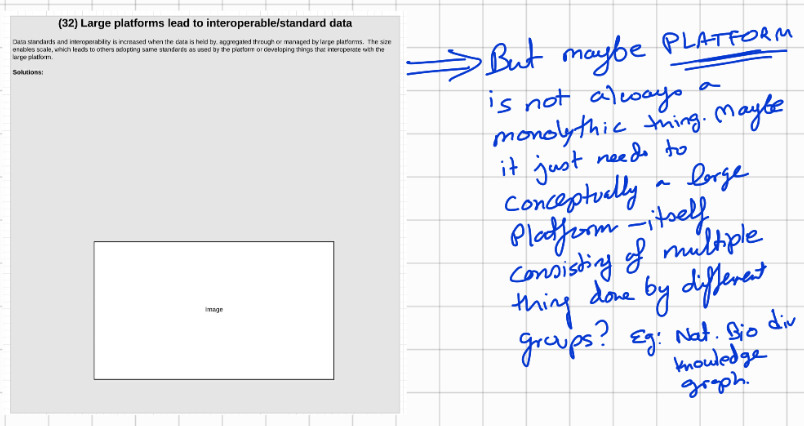 (32) Large platforms lead to interoperable/standard data
Data standards and interoperability is increased when the data is held by, aggregated through or managed by large platforms. The size
enables scale, which leads to others adopting same standards as used by the platform or developing things that interoperate with the
large platform.
Solutions:
Image
But maybe PLATFORM
is not always a
monolythic thing. Maybe
it just needs to
conceptually a large
Platform - itself
consisting of multiple
thing done by different
groups? Eg: Nat. Bio div
knowledge
graph.